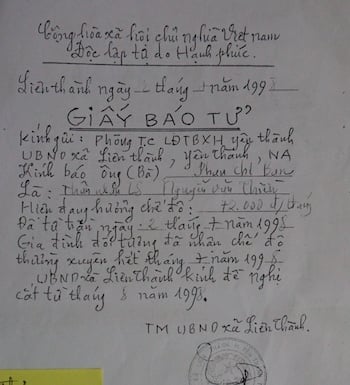 Cộng hòa xã hội chủ nghĩa Việt nam
Độc lập tự do Hạnh phúc.
Liên thành ngày 2 tháng 7 năm 1998
GIẤY BÁO TỬ"
Kính gửi: Phòng TC LĐTBXH Yên thành
UBND xã Liên thành, Yên Thành, NA
Kính báo ông (Bà) Phan Chí
Là: Thân nhân LS Nguyễn Văn Thiên
Hiện đang hưởng chế độ: 72.000 đ/tháng
Đã từ trần ngày: 2 tháng 7 năm 1998
Gia đình đối tượng đã nhận chế độ
thường xuyên hết tháng 7 năm 1998
UBND xã Liên Thành kính đề nghị
cắt từ tháng 8 năm 1998.
TM UBND xã Liên Thành.